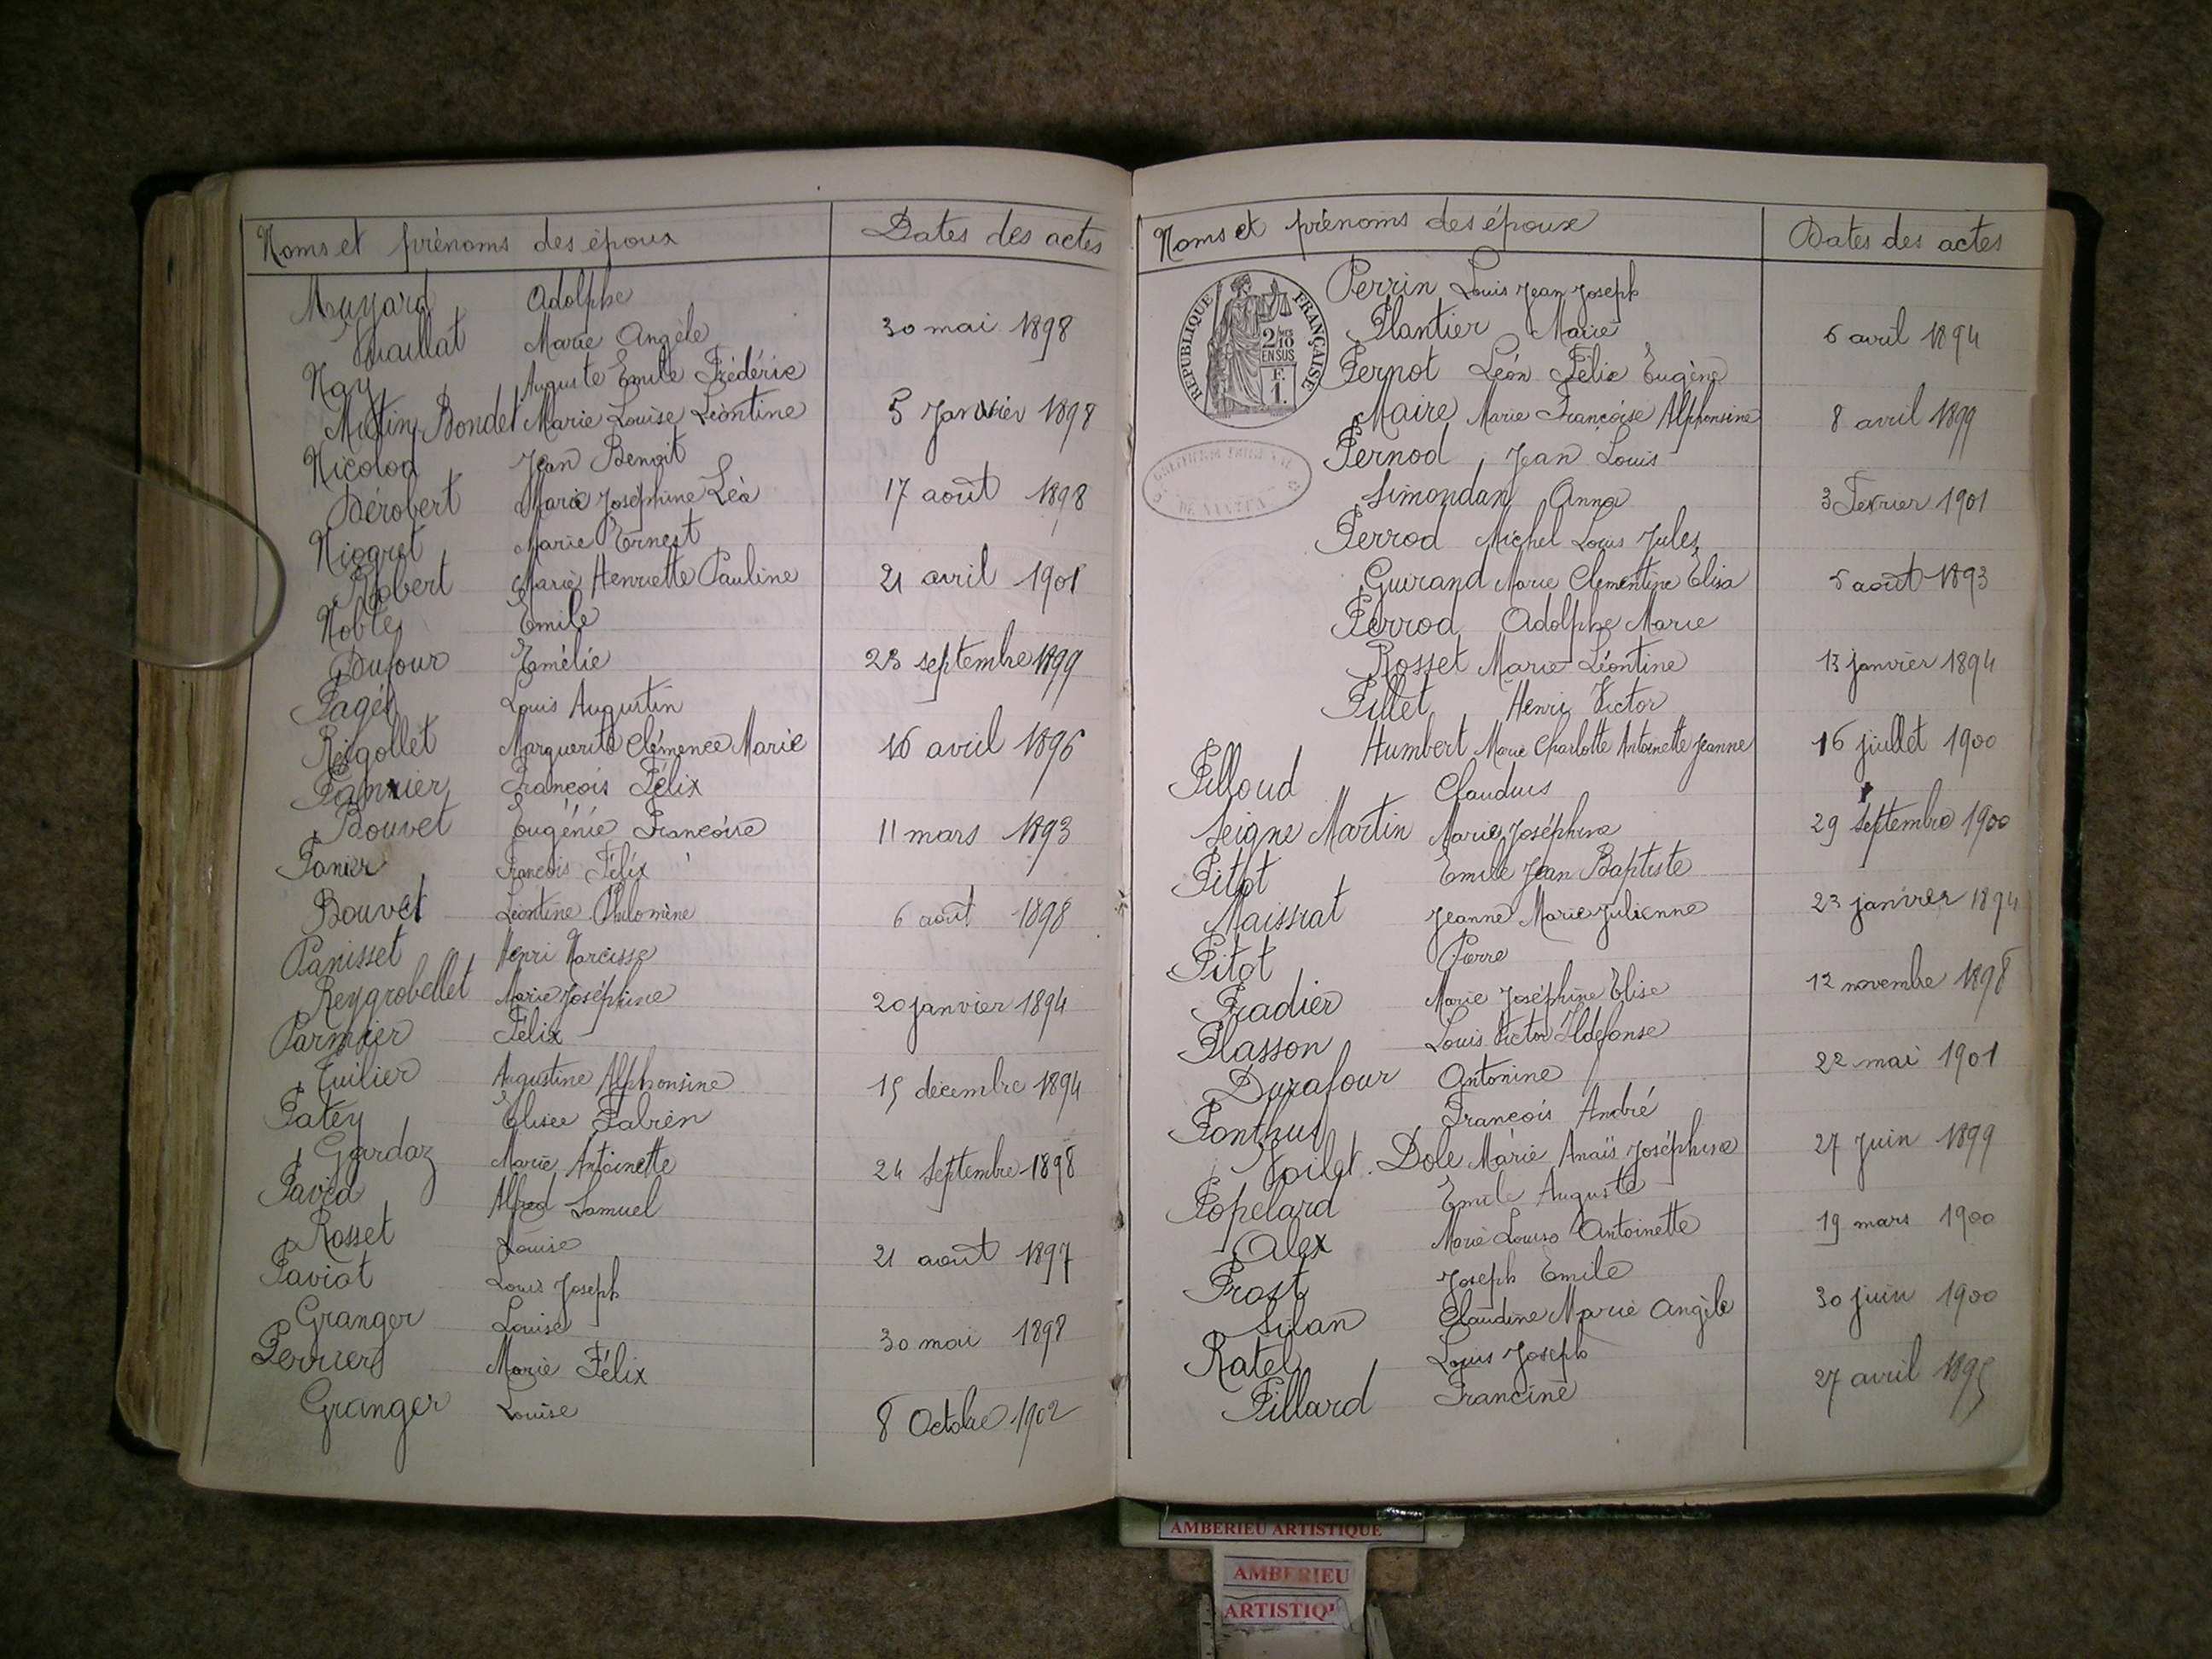 Noms et prénoms des époux
Dates des actes
Muyard Adolphe
Vuaillat Marie Angèle
30 mai 1898
Nay Auguste Emile Frédéric
Mutin Bondet Marie Louise Léontine
5 Janvier 1898
Nicolod Jean Benoit
Dérobert Marie Joséphine Léa
17 août 1898
Niogret Marie Ernest
Robert Marie Henriette Pauline
21 avril 1901
Noble Emile
Dufour Emélie
23 septembre 1899
Pagès Louis Augustin
Rigollet Marguerite Clémence Marie
16 avril 1896
Pannier François Félix
Bouvet Eugénie Françoise
11 mars 1893
Panier François Félix
Bouvet Léontine Philomène
6 août 1898
Panisset Henri Narcisse
Reygrobellet Marie Joséphine
20 janvier 1894
Parmier Félix
Tuilier Augustine Alphonsine
15 décembre 1894
Patey Elisée Fabien
Gardaz Marie Antoinette
24 Septembre 1898
Pavid Alfred Samuel
Rosset Louise
21 août 1897
Paviot Louis Joseph
Granger Louise
30 mai 1898
Perrier Marie Félix
Granger Louise
8 Octobre 1902
Noms et prénoms des époux
Dates des actes
RÉPUBLIQUE FRANÇAISE
2/10 EN SUS
F. 1.
Perrin Louis Jean Joseph
Plantier Marie
6 avril 1894
Pernot Léon Félix Eugène
Maire Marie Françoise Alphonsine
8 avril 1899
Pernod Jean Louis
DE NANTUA
Simondan Anna
3 Février 1901
Perrod Michel Louis Jules
Guirand Marie Clémentine Elisa
5 août 1893
Perrod Adolphe Marie
Rosset Marie Léontine
13 janvier 1894
Pillet Henri Victor
Humbert Marie Charlotte Antoinette Jeanne
16 juillet 1900
Pilloud Claudius
Seigne Martin Marie Joséphine
29 Septembre 1900
Pitot Emile Jean Baptiste
Maissiat Jeanne Marie Julienne
23 janvier 1894
Pitot Pierre
Pradier Marie Joséphine Elise
12 novembre 1898
Plasson Louis Victor Ildefonse
Durafour Antonine
22 mai 1901
Ponthus François André
Dole Marie Anaïs Joséphine
27 Juin 1899
Popelard Emile Auguste
Alex Marie Louise Antoinette
19 mars 1900
Prost Joseph Emile
Silan Claudine Marie Angèle
30 juin 1900
Ratel Louis Joseph
Pillard Francine
27 avril 1895
AMBERIEU ARTISTIQUE
AMBERIEU
ARTISTIQU